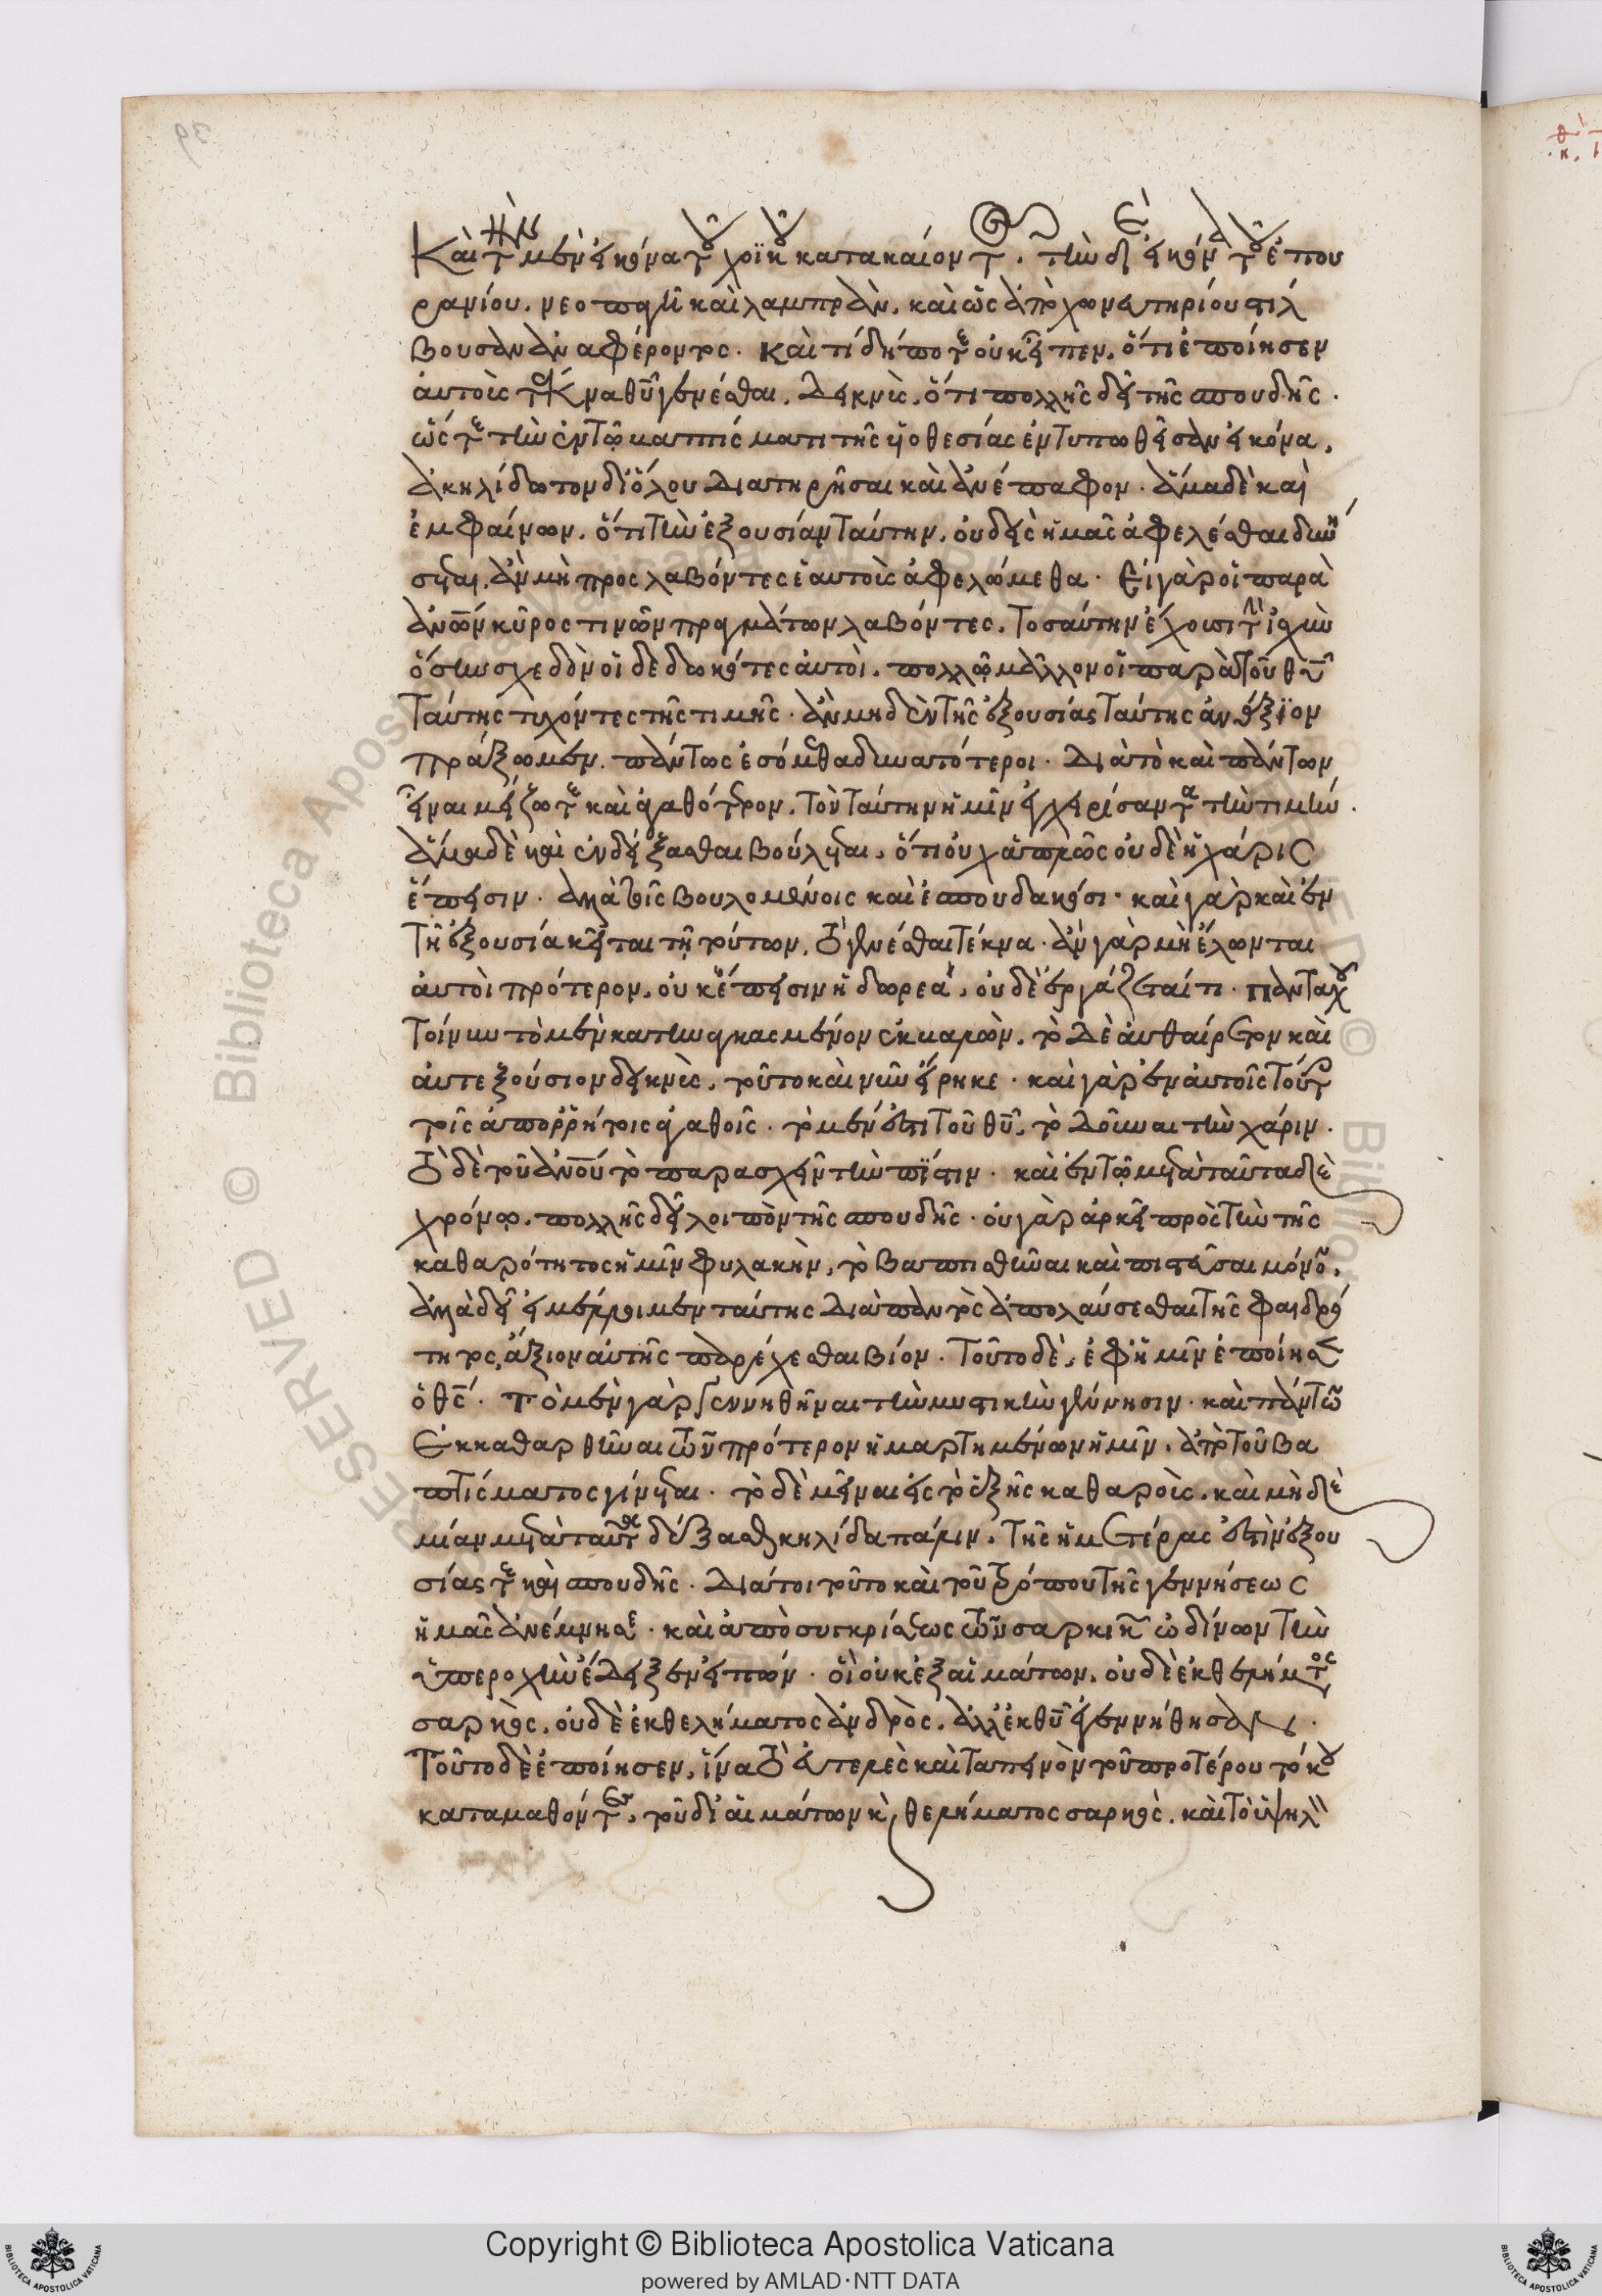 39
Καὶ τὴν μὲν εἰκόνα τοῦ χοϊκοῦ κατακαίοντος. τὴν δὲ εἰκόνα τοῦ ἐπου
ρανίου. νεοπαγῆ καὶ λαμπρὰν. καὶ ὡς ἀπὸ χωνευτηρίου στίλ
βουσαν ἀναφέροντος. Καὶ τί δήποτε οὐκ εἶπεν. ὅτι ἐποίησεν
αὐτοὺς τέκνα θῦ γενέσθαι. Δεικνὺς. ὅτι πολλῆς δεῖ τῆς σπουδῆς.
ὥστε τὴν ἐν τῷ βαπτίσματι τῆς υἱοθεσίας ἐντυπωθεῖσαν εἰκόνα,
ἀκηλίδωτον δι' ὅλου διατηρῆσαι καὶ ἀνέπαφον. ἅμα δὲ καὶ
ἐμφαίνων. ὅτι τὴν ἐξουσίαν ταύτην. οὐδεὶς ἡμᾶς ἀφελέσθαι δυνή
σεται. ἂν μὴ προσλαβόντες ἑαυτοὺς ἀφελώμεθα. Εἰ γὰρ οἱ παρὰ
ἀνων κῦρος τινῶν πραγμάτων λαβόντες. τοσαύτην ἔχουσι τὴν ἰσχὺν
ὅσην σχεδὸν οἱ δεδωκότες αὐτοὶ. πολλῷ μᾶλλον οἱ παρὰ τοῦ θῦ
ταύτης τυχόντες τῆς τιμῆς. ἂν μηδὲν τῆς ἐξουσίας ταύτης ἀνάξιον
πράξωμεν. πάντως ἐσόμεθα δυνατώτεροι. Διὰ τὸ καὶ πάντων
εἶναι μείζω τε καὶ ἀγαθώτερον. τὸν ταύτην ἡμῖν ἐγχειρίσαντα τὴν τιμήν.
ἅμα δὲ καὶ ἐνδείξασθαι βούλεται. ὅτι οὐχ ἁπλῶς οὐδὲ ἡ χάρις
ἔπεισιν. ἀλλὰ τοῖς βουλομένοις καὶ ἐσπουδακόσι. καὶ γὰρ καὶ ἐν
τῇ ἐξουσία κεῖται τῇ τούτων. τὸ γενέσθαι τέκνα. ἂν γὰρ μὴ ἕλωνται
αὐτοὶ πρότερον. οὐκ ἔπεισιν ἡ δωρεά. οὐδὲ ἐργάζεταί τι. πανταχοῦ
τοίνυν τὸ μὲν κατηναγκασμένον ἐκβαλὼν. τὸ δὲ αὐθαίρετον καὶ
αὐτεξούσιον δεικνὺς. τοῦτο καὶ νῦν εἴρηκε. καὶ γὰρ ἐν αὐτοῖς τούτοις
τοῖς ἀπορρήτοις ἀγαθοῖς. τὸ μέν ἐστι τοῦ θῦ. τὸ δοῦναι τὴν χάριν.
τὸ δὲ τοῦ ἀνου τὸ παρασχεῖν τὴν πίστιν. καὶ ἐν τῷ μετὰ ταῦτα δὲ
χρόνῳ. πολλῆς δεῖ λοιπὸν τῆς σπουδῆς. οὐ γὰρ ἀρκεῖ πρὸς τὴν τῆς
καθαρότητος ἡμῖν φυλακὴν. τὸ βαπτισθῆναι καὶ πιστεῦσαι μόνον.
ἀλλὰ δεῖ εἰ μέλλοιμεν ταύτης διὰ παντὸς ἀπολαύσεσθαι τῆς φαιδρό
τητος, ἄξιον αὐτῆς παρέχεσθαι βίον. Τοῦτο δὲ. ἐφ' ἡμῖν ἐποίησεν
ὁ θς. Τὸ μὲν γὰρ γεννηθῆναι τὴν μυστικὴν γέννησιν. καὶ πάντων
ἐκκαθαρθῆναι τῶν πρότερον ἡμαρτημένων ἡμῖν. ἀπὸ τοῦ βα
πτίσματος γίνεται. τὸ δὲ μεῖναι εἰς τὸ ἑξῆς καθαροὺς. καὶ μηδε
μίαν μετὰ ταῦτα δέξασθαι κηλίδα πάλιν. τῆς ἡμετέρας ἐστὶν ἐξου
σίας τε καὶ σπουδῆς. Διάτοι τοῦτο καὶ τοῦ τρόπου τῆς γεννήσεως
ἡμᾶς ἀνέμνησε. καὶ ἀπὸ συγκρίσεως τῶν σαρκικῶν ὠδίνων τὴν
ὑπεροχὴν ἔδειξεν εἰπών. οἳ οὐκ ἐξ αἱμάτων. οὐδὲ ἐκ θελήματος
σαρκὸς. οὐδὲ ἐκ θελήματος ἀνδρὸς. ἀλλ' ἐκ θῦ ἐγεννήθησαν.
Τοῦτο δὲ ἐποίησεν. ἵνα τὸ εὐτελὲς καὶ ταπεινὸν τοῦ προτέρου τόκου
καταμαθόντες. τοῦ δι' αἱμάτων κ̀ θελήματος σαρκὸς. καὶ τὸ ὑψηλὸν
Copyright © Biblioteca Apostolica Vaticana
powered by AMLAD·NTT DATA